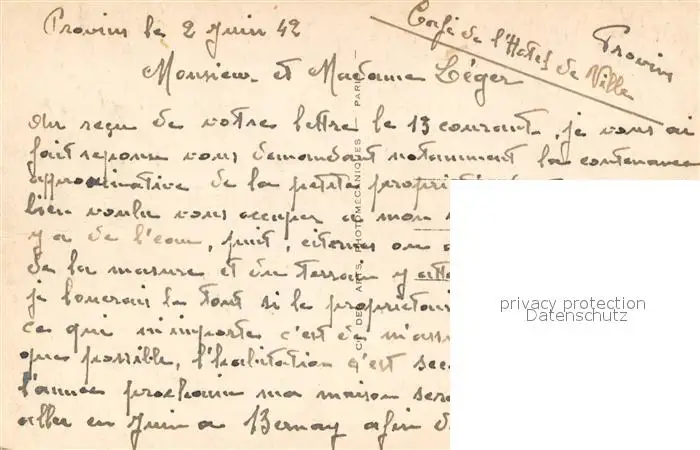 Provins le 2 Juin 42
Café de l'Hotel de Ville
Provins
Monsieur et Madame Léger
Au reçu de votre lettre le 13 courant, je vous ai
fait reponse vous demandant notamment la contenance
approximative de la petite propriété
bien voulu vous occuper a mon
y a de l'eau, puit, citernes ou
de la masure et du terrain y atte
je louerais le tout si le propriétair
ce qui m'importe c'est de m'ass
que possible, l'habitation c'est sec
l'année prochain ma maison ser
aller en Juin a Bernay afin d
CIE DES ARTS PHOTOMÉCANIQUES — PARIS
privacy protection
Datenschutz